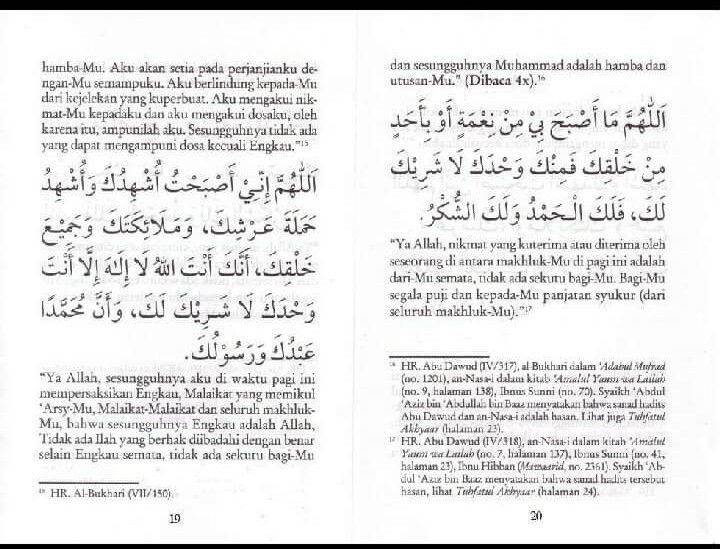 hamba-Mu. Aku akan setia pada perjanjianku de-
ngan-Mu semampuku. Aku berlindung kepada-Mu
dari kejelekan yang kuperbuat. Aku mengakui nik-
mat-Mu kepadaku dan aku mengakui dosaku, oleh
karena itu, ampunilah aku. Sesungguhnya tidak ada
yang dapat mengampuni dosa kecuali Engkau."¹⁵
اَللّٰهُمَّ إِنِّيْ أَصْبَحْتُ أُشْهِدُكَ وَأُشْهِدُ
حَمَلَةَ عَرْشِكَ، وَمَلَائِكَتَكَ وَجَمِيْعَ
خَلْقِكَ، أَنَّكَ أَنْتَ اللهُ لَا إِلَـٰهَ إِلَّا أَنْتَ
وَحْدَكَ لَا شَرِيْكَ لَكَ، وَأَنَّ مُحَمَّدًا
عَبْدُكَ وَرَسُوْلُكَ.
"Ya Allah, sesungguhnya aku di waktu pagi ini
mempersaksikan Engkau, Malaikat yang memikul
'Arsy-Mu, Malaikat-Malaikat dan seluruh makhluk-
Mu, bahwa sesungguhnya Engkau adalah Allah,
Tidak ada Ilah yang berhak diibadahi dengan benar
selain Engkau semata, tidak ada sekutu bagi-Mu
¹⁵ HR. Al-Bukhari (VII/150).
19
dan sesungguhnya Muhammad adalah hamba dan
utusan-Mu." (Dibaca 4x).¹⁶
اَللّٰهُمَّ مَا أَصْبَحَ بِيْ مِنْ نِعْمَةٍ أَوْ بِأَحَدٍ
مِنْ خَلْقِكَ فَمِنْكَ وَحْدَكَ لَا شَرِيْكَ
لَكَ، فَلَكَ الْـحَمْدُ وَلَكَ الشُّكْرُ.
"Ya Allah, nikmat yang kuterima atau diterima oleh
seseorang di antara makhluk-Mu di pagi ini adalah
dari-Mu semata, tidak ada sekutu bagi-Mu. Bagi-Mu
segala puji dan kepada-Mu panjatan syukur (dari
seluruh makhluk-Mu)."¹⁷
¹⁶ HR. Abu Dawud (IV/317), al-Bukhari dalam 'Adabul Mufrad
(no. 1201), an-Nasa-i dalam kitab 'Amalul Yaum wa Lailah
(no. 9, halaman 138), Ibnus Sunni (no. 70). Syaikh 'Abdul
'Aziz bin 'Abdullah bin Baaz menyatakan bahwa sanad hadits
Abu Dawud dan an-Nasa-i adalah hasan. Lihat juga Tuhfatul
Akhyaar (halaman 23).
¹⁷ HR. Abu Dawud (IV/318), an-Nasa-i dalam kitab 'Amalul
Yaum wa Lailah (no. 7, halaman 137), Ibnus Sunni (no. 41,
halaman 23), Ibnu Hibban (Mawaarid, no. 2361). Syaikh 'Ab-
dul 'Aziz bin Baaz menyatakan bahwa sanad hadits tersebut
hasan, lihat Tuhfatul Akhyaar (halaman 24).
20